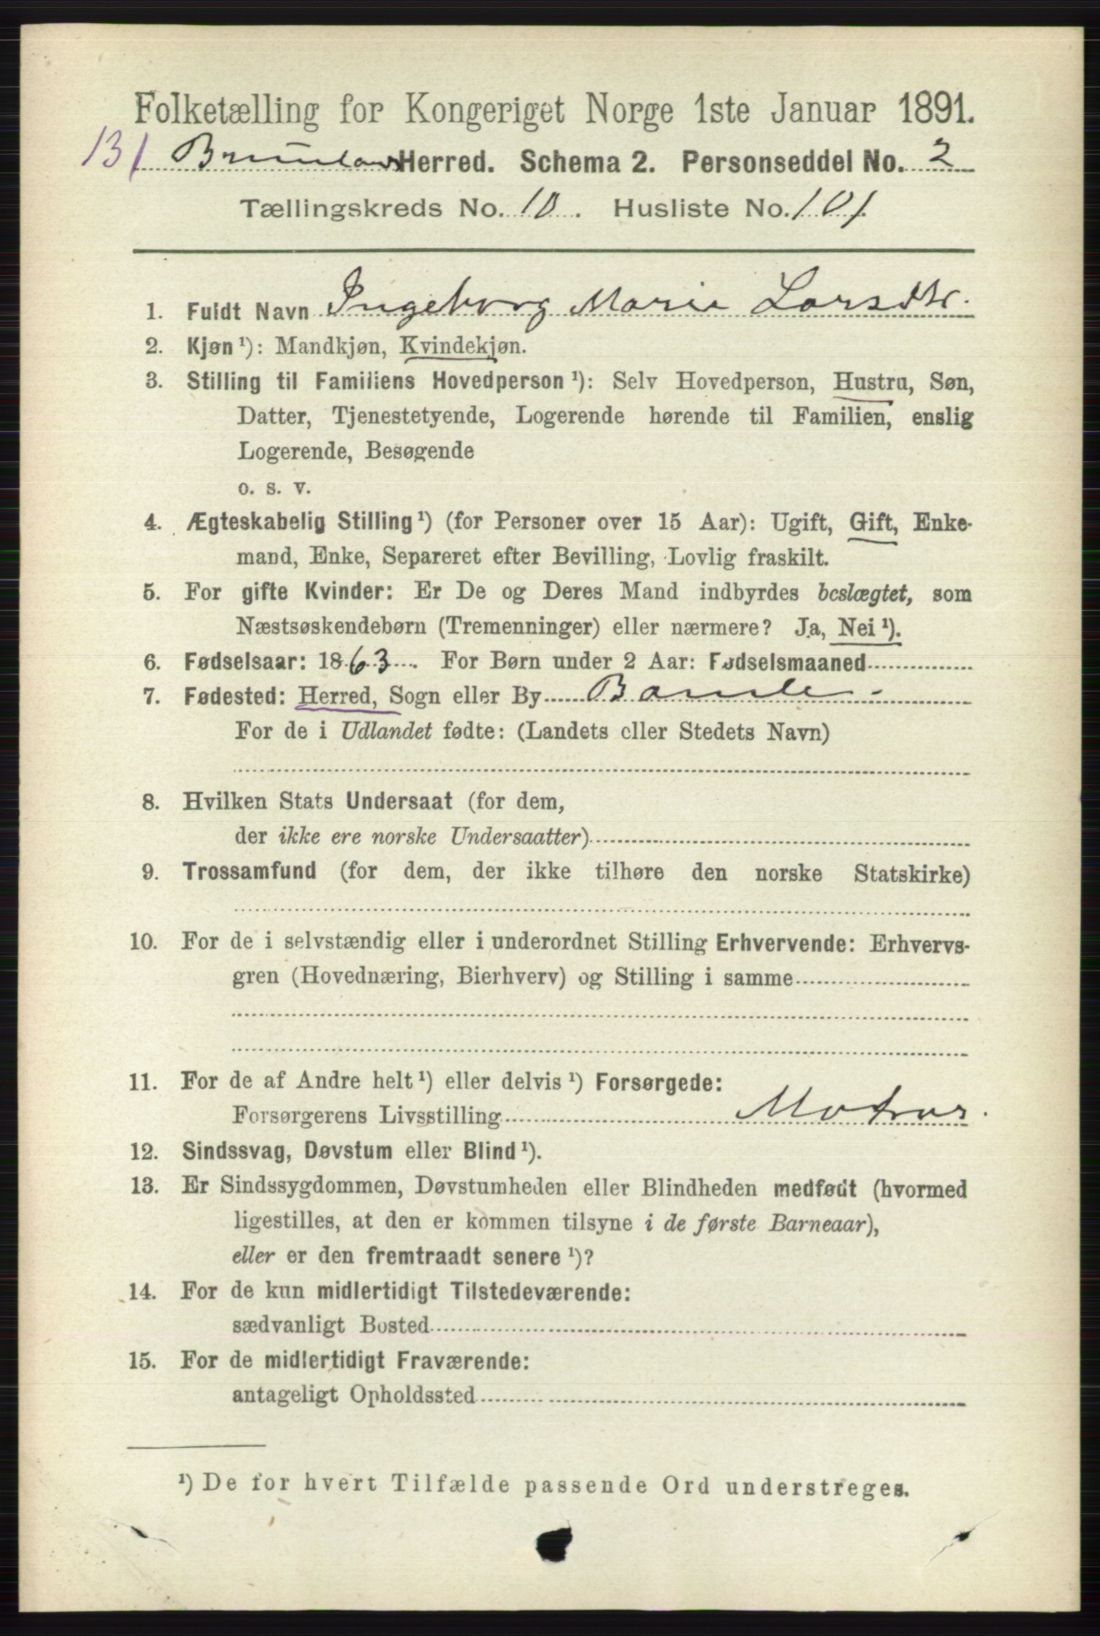 Folketælling for Kongeriget Norge 1ste Januar 1891.
131 Brunlanes Herred. Schema 2. Personseddel No. 2
Tællingskreds No. 10. Husliste No. 101.
1. Fuldt Navn Ingeborg Marie Larsdtr.
2. Kjøn¹): Mandkjøn, Kvindekjøn.
3. Stilling til Familiens Hovedperson¹): Selv Hovedperson, Hustru, Søn,
Datter, Tjenestetyende, Logerende hørende til Familien, enslig
Logerende, Besøgende
o. s. v.
4. Ægteskabelig Stilling¹) (for Personer over 15 Aar): Ugift, Gift, Enke-
mand, Enke, Separeret efter Bevilling, Lovlig fraskilt.
5. For gifte Kvinder: Er De og Deres Mand indbyrdes beslægtet, som
Næstsøskendebørn (Tremenninger) eller nærmere? Ja, Nei¹).
6. Fødselsaar: 1863. For Børn under 2 Aar: Fødselsmaaned
7. Fødested: Herred, Sogn eller By Bamle
For de i Udlandet fødte: (Landets eller Stedets Navn)
8. Hvilken Stats Undersaat (for dem,
der ikke ere norske Undersaatter)
9. Trossamfund (for dem, der ikke tilhøre den norske Statskirke)
10. For de i selvstændig eller i underordnet Stilling Erhvervende: Erhvervs-
gren (Hovednæring, Bierhverv) og Stilling i samme
11. For de af Andre helt¹) eller delvis¹) Forsørgede:
Forsørgerens Livsstilling Matros.
12. Sindssvag, Døvstum eller Blind¹).
13. Er Sindssygdommen, Døvstumheden eller Blindheden medfødt (hvormed
ligestilles, at den er kommen tilsyne i de første Barneaar),
eller er den fremtraadt senere¹)?
14. For de kun midlertidigt Tilstedeværende:
sædvanligt Bosted
15. For de midlertidigt Fraværende:
antageligt Opholdssted
¹) De for hvert Tilfælde passende Ord understreges.